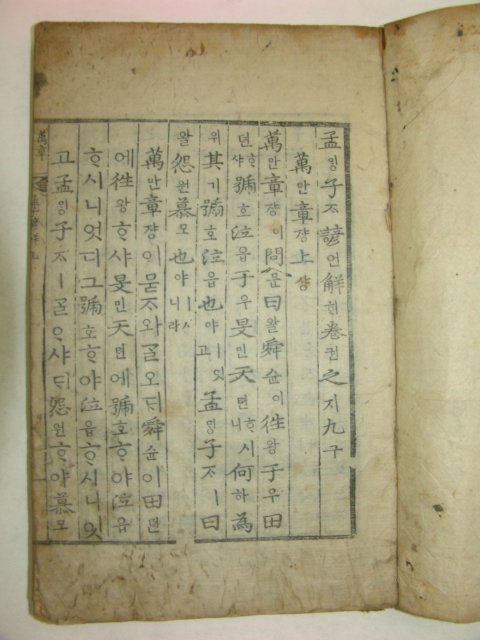 孟ᄆᆡᆼ子ᄌᆞ諺언解ᄒᆡ卷권之지九구
萬만章쟝上샹
萬만章쟝이問문曰왈舜슌이往왕于우田
뎐ᄒᆞ샤號호泣읍于우旻민天텬ᄒᆞ시니何하爲
위其기號호泣읍也야ㅣ잇고孟ᄆᆡᆼ子ᄌᆞㅣ曰
왈怨원慕모也야ㅣ니라
萬만章쟝이묻ᄌᆞ와ᄀᆞᆯ오ᄃᆡ舜슌이田뎐
에往왕ᄒᆞ샤旻민天텬에號호ᄒᆞ야泣읍
ᄒᆞ시니엇디그號호ᄒᆞ야泣읍ᄒᆞ시니잇
고孟ᄆᆡᆼ子ᄌᆞㅣᄀᆞᆯᄋᆞ샤ᄃᆡ怨원ᄒᆞ야慕모
萬章